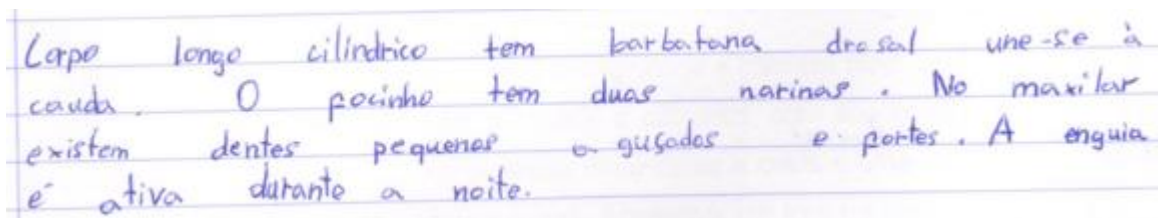 Corpo longo cilindrico tem barbatana drosal une-se à
cauda. O focinho tem duas narinas. No maxilar
existem dentes pequenos a guçados e fortes. A enguia
é ativa durante a noite.